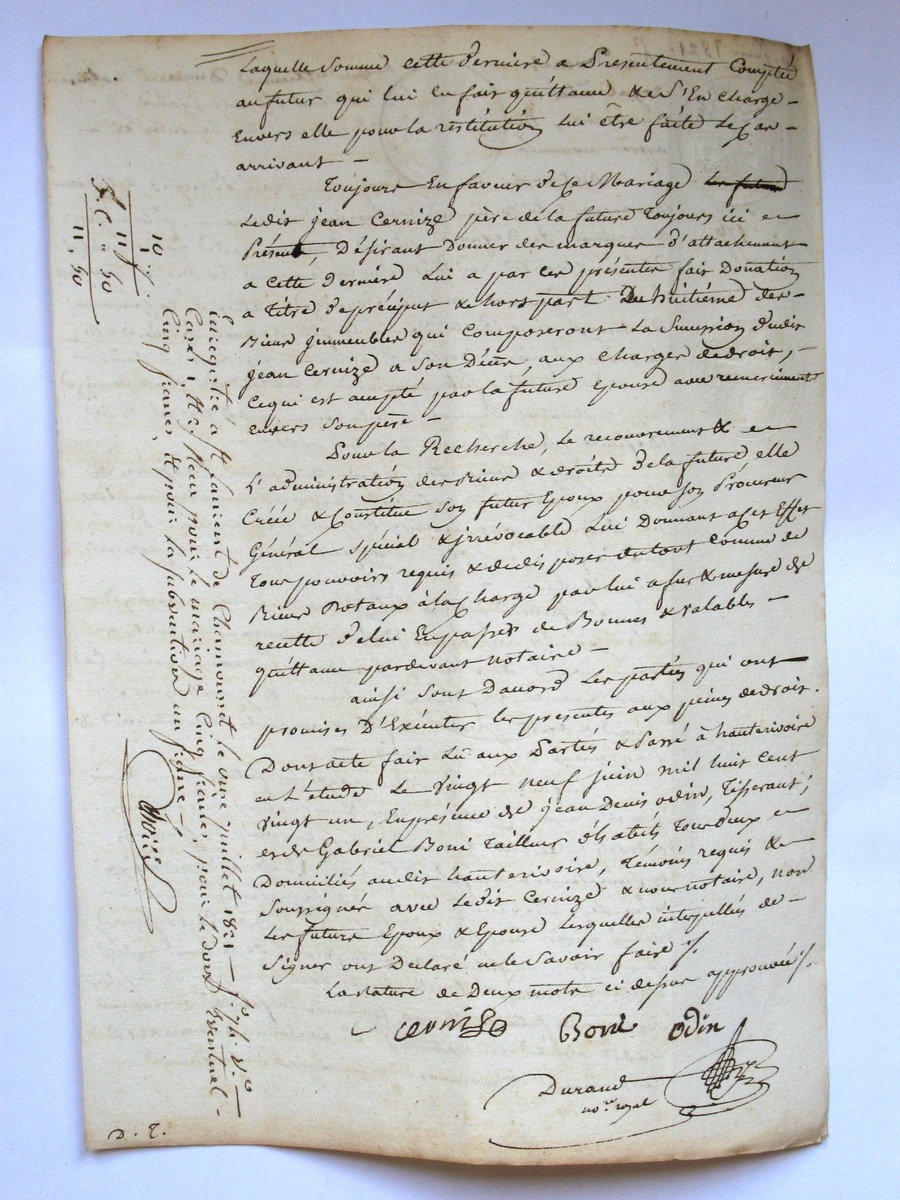 Laquelle somme cette derniere a Presentement Comptée
au futur qui lui en fair quittance & se S'En charge -
Envers elle pour la restitution lui être faite Le Cas -
arrivant -
Toujours En faveur de ce Mariage Le futur
Ledit jean Cernize père de la future Toujours ici et
Présent, Désirant Donner des marques d'attachement
a cette derniere Lui a par ces présentes fair Donation
a Titre de préciput & hors part Du huitième des -
Biens jmmeubles qui Composeront La Sucession dudit
jean Cernize a Son Décès, aux Charges de droit, -
Ce qui est accepté par la future Epouse avec remerciement
envers Son père -
Pour la Recherche, Le recouvrement & et
L'administration des Biens & droits de la future elle
Créé & Constitue Son futur Epoux pour Son Procureur
Général Spécial & jrrévocable Lui Donnant a Cet Effet
Tous pouvoirs requis & de disposer du tout Comme de
Biens Dotaux à la Charge par lui a fur & mesure de
recette de lui En passer de Bonnes & valables -
quittance pardevant notaire -
ainsi Sont Daccord Les parties qui ont
promises D'Exécuter les presentes aux peines de droit.
Dont acte fair Lu aux Parties & Passé à hauterivoire
en L'étude Le Vingt neuf juin mil huit Cent
Vingt un, En présence de jean Denis odin, Tisserant ;
et de Gabriel Boni Tailleur d'habits Tous deux et
Domiciliés audit hauterivoire, Témoins requis &
Soussignés avec Ledit Cernize & nous notaire, non
Les future Epoux & Epouse Lesquelles interpellés de -
Signer ont Déclaré ne le Savoir faire /.
La rature de Deux mots ci dessus approuvée /.
Cernize Boni Odin
Durand
no.re royal
D. T.
10
1
11 f.
P. C. " 50
11, 50
Enregistré à St Laurent de Chamousset le onze juillet 1821 - f.o 74 V.o
Cases 1, & Reçu pour le mariage Cinq francs, pour le don Eventuel -
Cinq francs, et pour la subvention un franc -